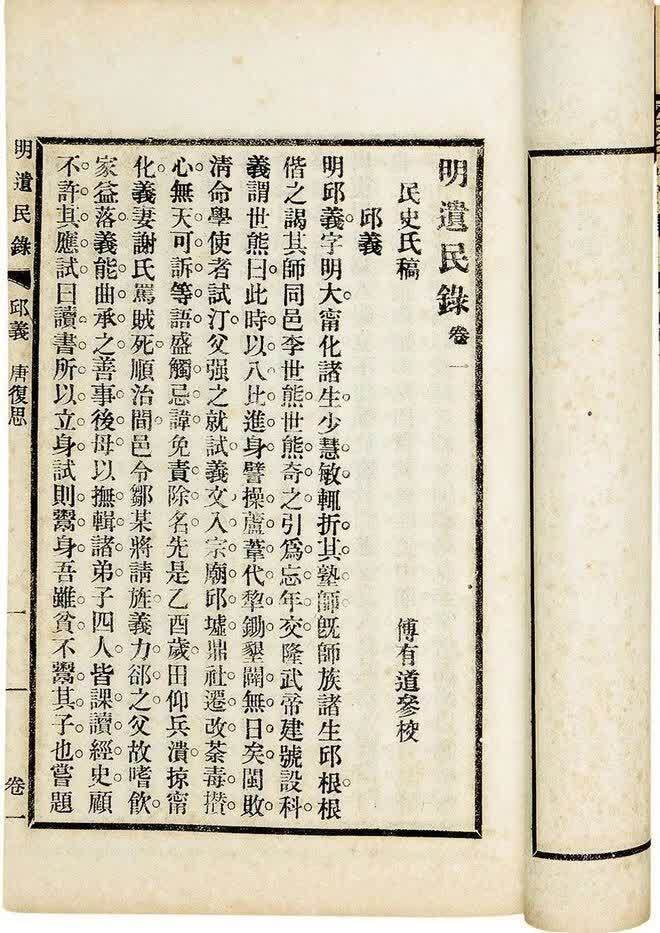 明遺民錄 卷一
民史氏稿 傅有道參校
邱義
明邱義字明大。甯化諸生少慧敏輒折其塾師旣師族諸生邱根根
偕之謁其師同邑李世熊世熊奇之引爲忘年交。隆武帝建號設科。
義謂世熊曰此時以八比進身譬操蘆葦代犂鋤墾闢無日矣。閩敗
清命學使者試汀父强之就試義文入宗廟邱墟鼎社遷改荼毒攢
心無天可訴等語盛觸忌諱免責除名先是乙酉歲田仰兵潰掠甯
化義妻謝氏罵賊死。順治間邑令鄒某將請旌義力郤之父故嗜飲
家益落義能曲承之善事後母以撫輯諸弟子四人皆課讀經史顧
不許其應試曰讀書所以立身試則鬻身吾雖貧不鬻其子也。嘗題
明遺民錄 邱義 唐復思 一 卷一